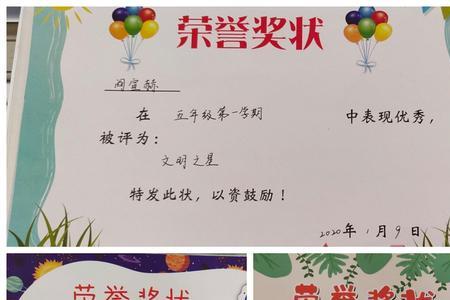 荣誉奖状
阎宣赫
在 五年级第一学期 中表现优秀，
被评为：
文明之星
特发此状，以资鼓励！
2020年 1月9日
荣誉奖状
荣誉奖状